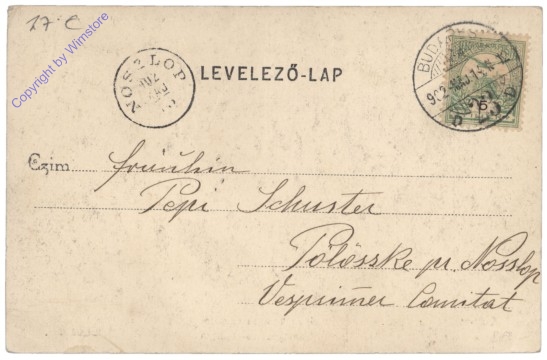 17. C
Copyright by Wimstore
NOSZLOP
BUDAPEST
LEVELEZŐ-LAP
902
D
6
Czim Fräulein
Pepi Schuster
Pölösske pr. Noszlop
Veszprimer Comitat